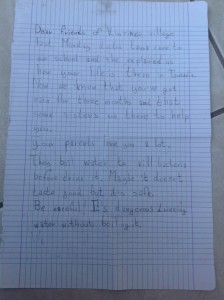 Dear friends of
last Monday came to
our school and she explained us
how your life is there in
Now we know that you've got
only three months and that
some sisters are there to help
you.
Your parents love you a lot.
They boil water to kill bacteria
before drink it. Maybe it doesn't
taste good but it's safe.
Be careful! It's dangerous drinking
water without boil it.